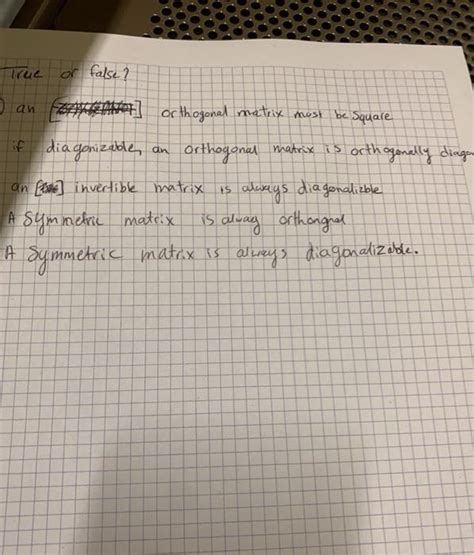 True or false?
an [ ] orthogonal matrix must be square
if diagonizable, an orthogonal matrix is orthogonally diagon
an [ ] invertible matrix is always diagonalizble
A Symmetric matrix is alway orthongnal
A Symmetric matrix is always diagonalizable.